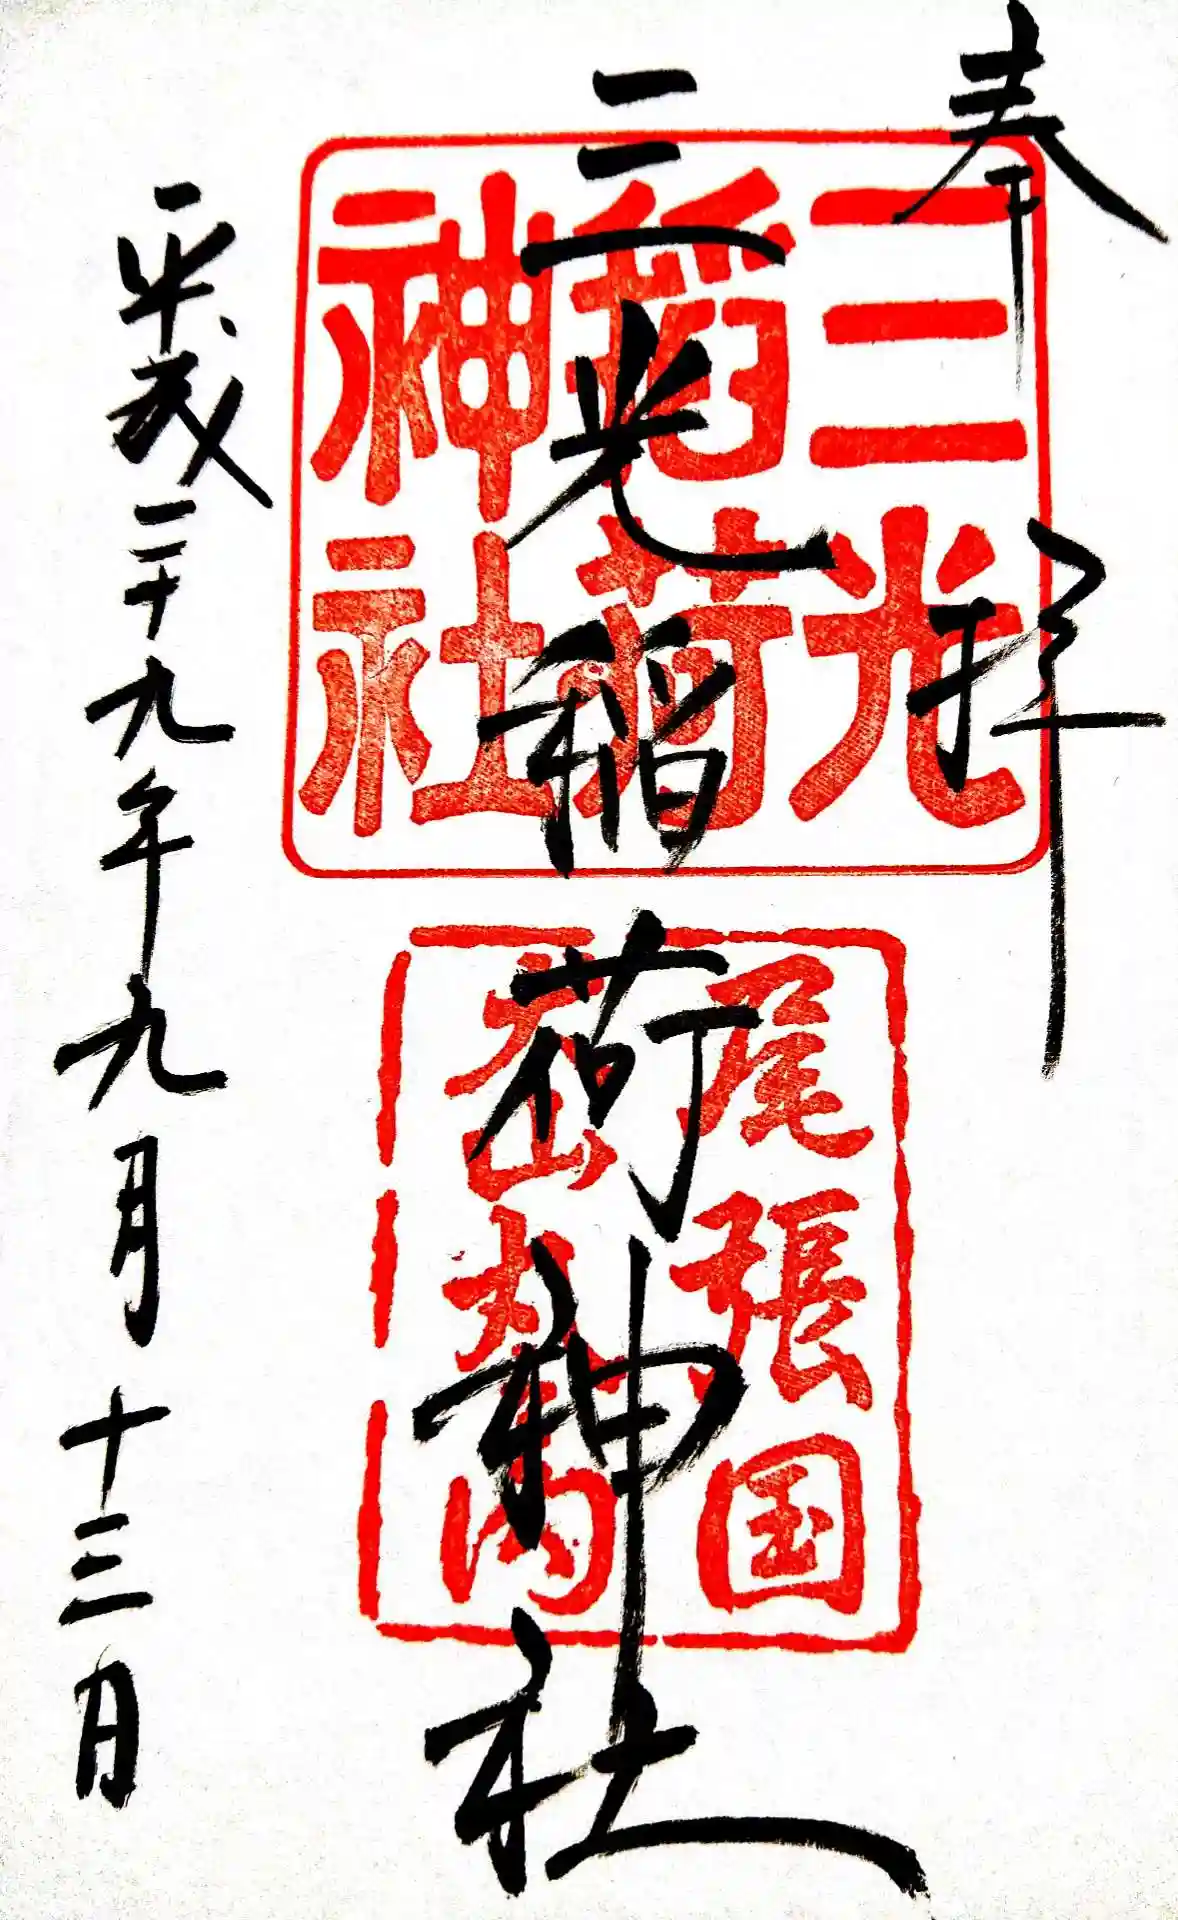 奉拝
三光稲荷神社
平成二十九年九月十三日
三光
稲荷
神社
尾張国
犬山 内